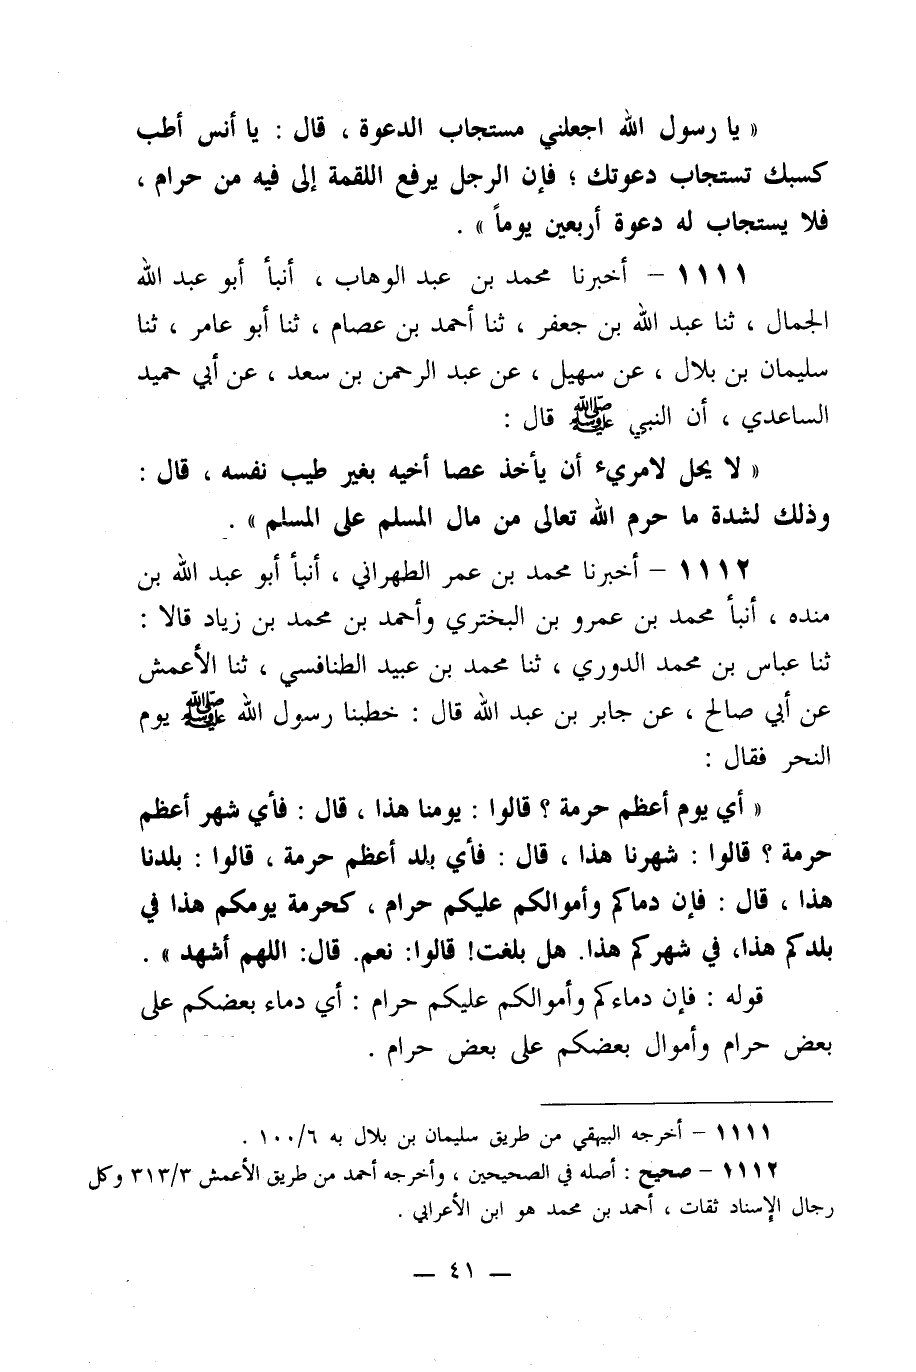 « يا رسول الله اجعلني مستجاب الدعوة ، قال : يا أنس أطب
كسبك تستجاب دعوتك ؛ فإن الرجل يرفع اللقمة إلى فيه من حرام ،
فلا يستجاب له دعوة أربعين يوماً » .
١١١١ – أخبرنا محمد بن عبد الوهاب ، أنبأ أبو عبد الله
الجمال ، ثنا عبد الله بن جعفر ، ثنا أحمد بن عصام ، ثنا أبو عامر ، ثنا
سليمان بن بلال ، عن سهيل ، عن عبد الرحمن بن سعد ، عن أبي حميد
الساعدي ، أن النبي ﷺ قال :
« لا يحل لامريء أن يأخذ عصا أخيه بغير طيب نفسه ، قال :
وذلك لشدة ما حرم الله تعالى من مال المسلم على المسلم » .
١١١٢ – أخبرنا محمد بن عمر الطهراني ، أنبأ أبو عبد الله بن
منده ، أنبأ محمد بن عمرو بن البختري وأحمد بن محمد بن زياد قالا :
ثنا عباس بن محمد الدوري ، ثنا محمد بن عبيد الطنافسي ، ثنا الأعمش
عن أبي صالح ، عن جابر بن عبد الله قال : خطبنا رسول الله ﷺ يوم
النحر فقال :
« أي يوم أعظم حرمة ؟ قالوا : يومنا هذا ، قال : فأي شهر أعظم
حرمة ؟ قالوا : شهرنا هذا ، قال : فأي بلد أعظم حرمة ، قالوا : بلدنا
هذا ، قال : فإن دماكم وأموالكم عليكم حرام ، كحرمة يومكم هذا في
بلدكم هذا، في شهركم هذا. هل بلغت! قالوا: نعم. قال: اللهم أشهد » .
قوله : فإن دماءكم وأموالكم عليكم حرام : أي دماء بعضكم على
بعض حرام وأموال بعضكم على بعض حرام .
١١١١ – أخرجه البيهقي من طريق سليمان بن بلال به ١٠٠/٦ .
١١١٢ – صحيح : أصله في الصحيحين ، وأخرجه أحمد من طريق الأعمش ٣١٣/٣ وكل
رجال الإسناد ثقات ، أحمد بن محمد هو ابن الأعرابي .
— ٤١ —